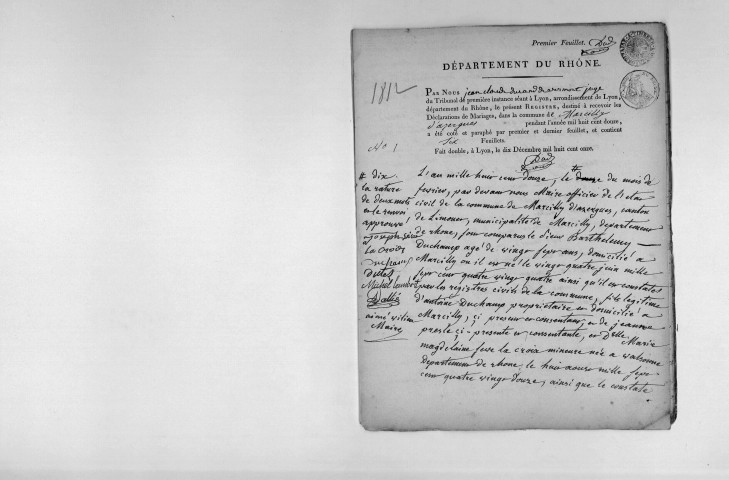 Premier Feuillet.
DÉPARTEMENT DU RHÔNE.
1812
PAR NOUS jean claude durand de juge
du Tribunal de première instance séant à Lyon, arrondissement de Lyon,
département du Rhône, le présent REGISTRE, destiné à recevoir les
Déclarations de Mariages, dans la commune de Marcilly
d'azergues pendant l'année mil huit cent douze,
a été coté et paraphé par premier et dernier feuillet, et contient
Six Feuillets.
Fait double, à Lyon, le dix Décembre mil huit cent onze.
No. 1
# dix.
la rature
de deux mots
et le renvoi
approuvé
joseph
la Croix
Michel
aimé
Maire
L'an mille huit cent douze, le # du mois de
fevrier, par devant nous Maire officier de l'etat
civil de la commune de Marcilly d'azergues, canton
de Limonet, municipalité de Marcilly, departement
de rhone, sont comparus le sieur Barthelemy
Duchamp agé de vingt sept ans, domicilié a
Marcilly ou il est né le vingt quatre juin mille
sept cent quatre vingt quatre ainsi qu'il est constaté
par les registres civils de la commune, fils legitime
d'antoine Duchamp propriétaire et domicilié a
Marcilly, ci present et consentant, et de jeanne
presle ci-presente et consentante, et Delle Marie
magdelaine la croix mineure née a
departement de rhone, le huit aoust mille sept
cent quatre vingt douze, ainsi que le constate